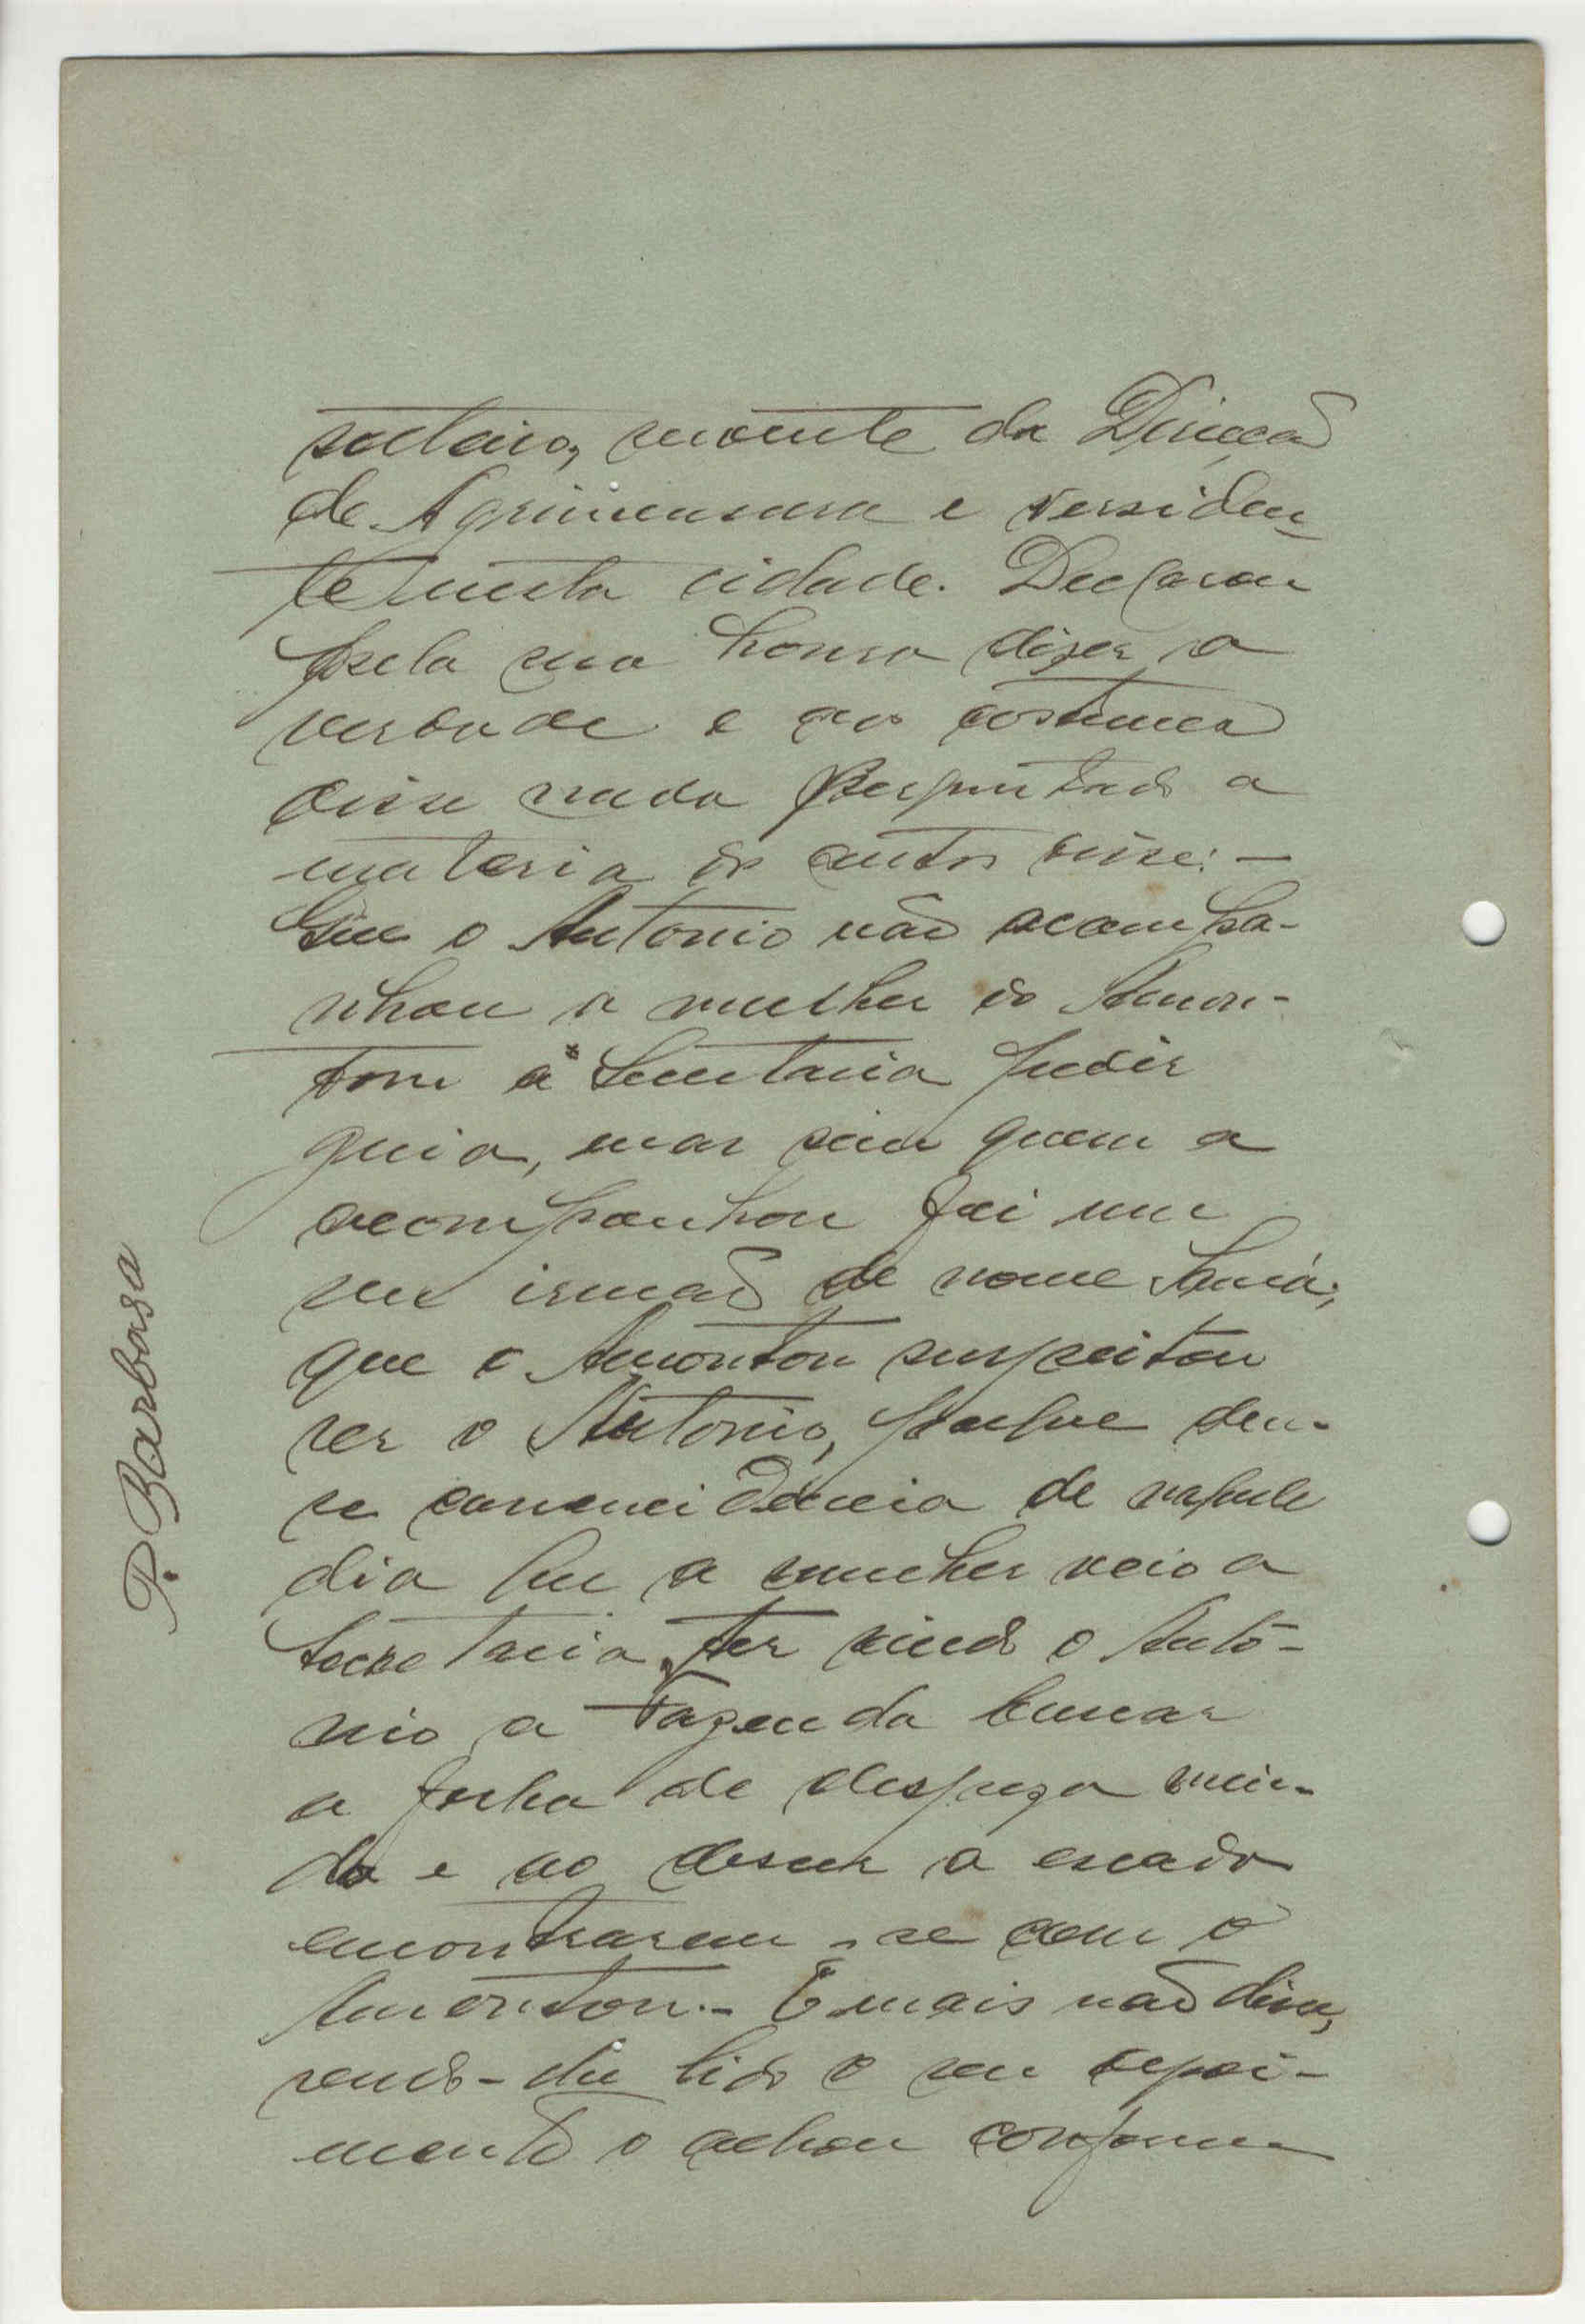 solteiro, servente da Direcção
de Agrimensura e residen
te nesta cidade. Declarou
pela sua honra dizer a
verdade e aos costumes
disse nada Perguntado a
materia do autos disse: —
Que o Antonio não acompa-
nhou a mulher do Amon-
ton á Secretaria pedir
guia, mas sim quem a
acompanhou foi um
seu irmão de nome
que o Amonton suspeitou
ser o Antonio, porque deu-
se de naquele
dia que a mulher veio a
Secretaria, ter vindo o Antó-
nio a Fazenda buscar
a folha de despeza miu-
da e ao descer a escada
encontraram-se com o
Amonton.- E mais não disse,
sendo-lhe lido o seu depoi-
mento o achou conforme
P. Barbosa